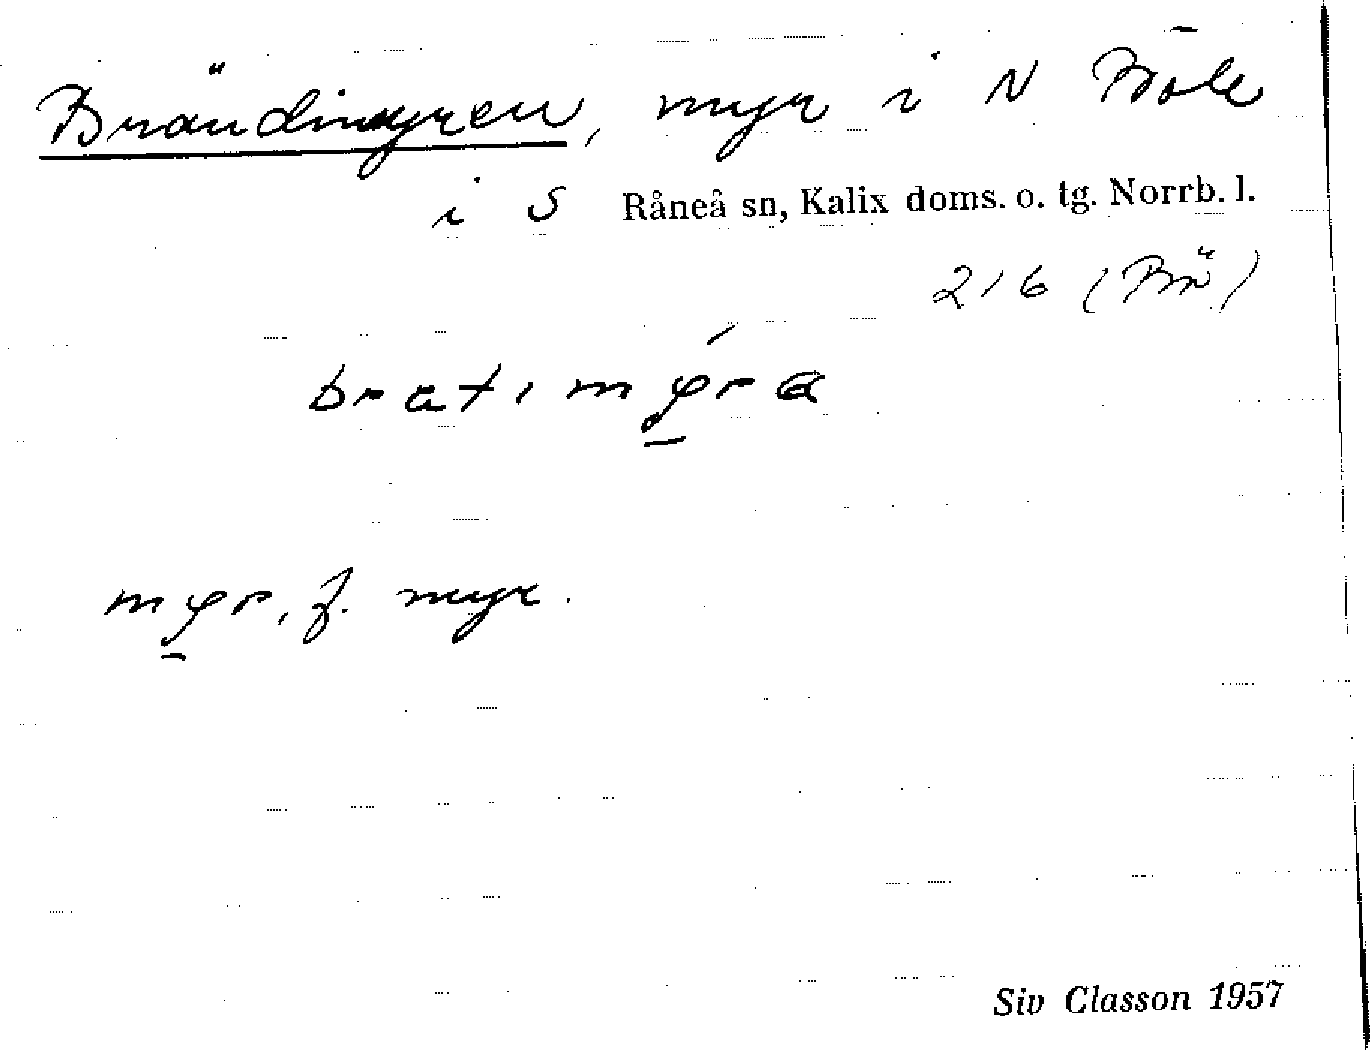 Brändimyren, myr i N Böle
i S Råneå sn, Kalix doms. o. tg. Norrb. l.
216 (Brä)
myr, f. myr.
Siv Classon 1957